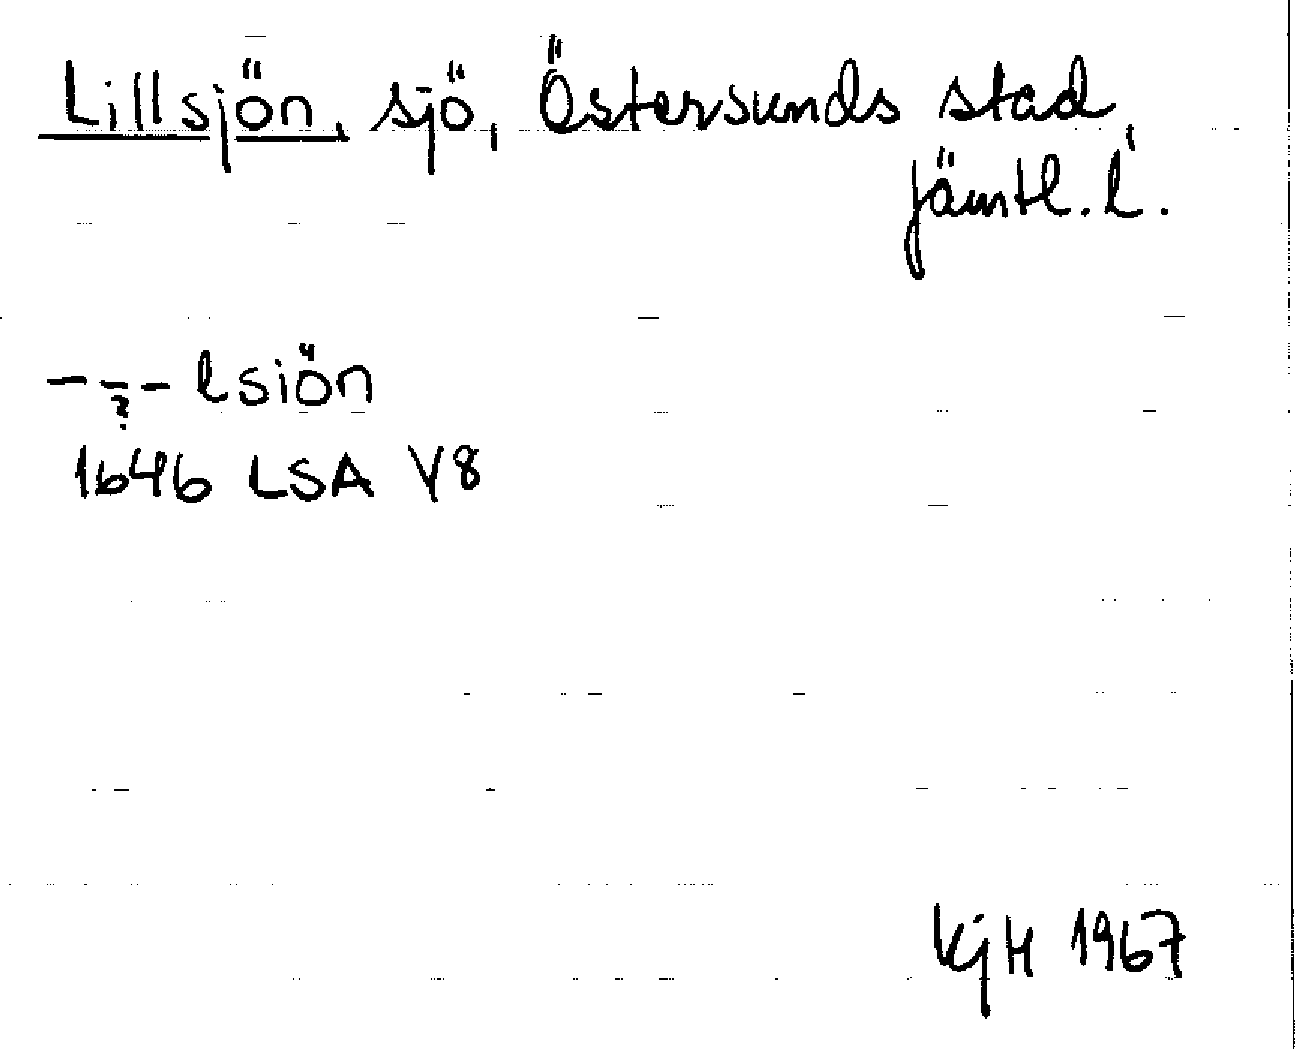 Lillsjön, sjö, Östersunds stad,
Jämtl. l.
--- lsiön
?
1646 LSA V8
KjH 1967